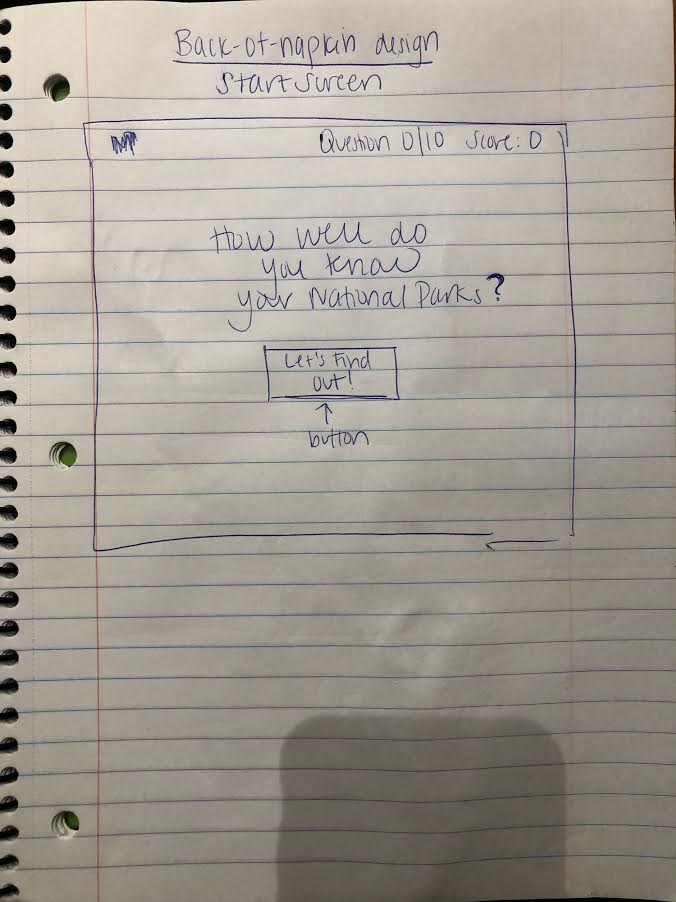 Back-of-napkin design
Start Screen
Question 0/10 Score: 0
How well do
you know
your National Parks?
Let's Find
out!
↑
button